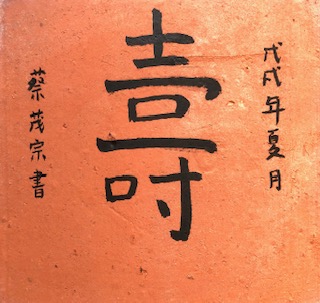 戊戌年夏月
壽
蔡茂宗書